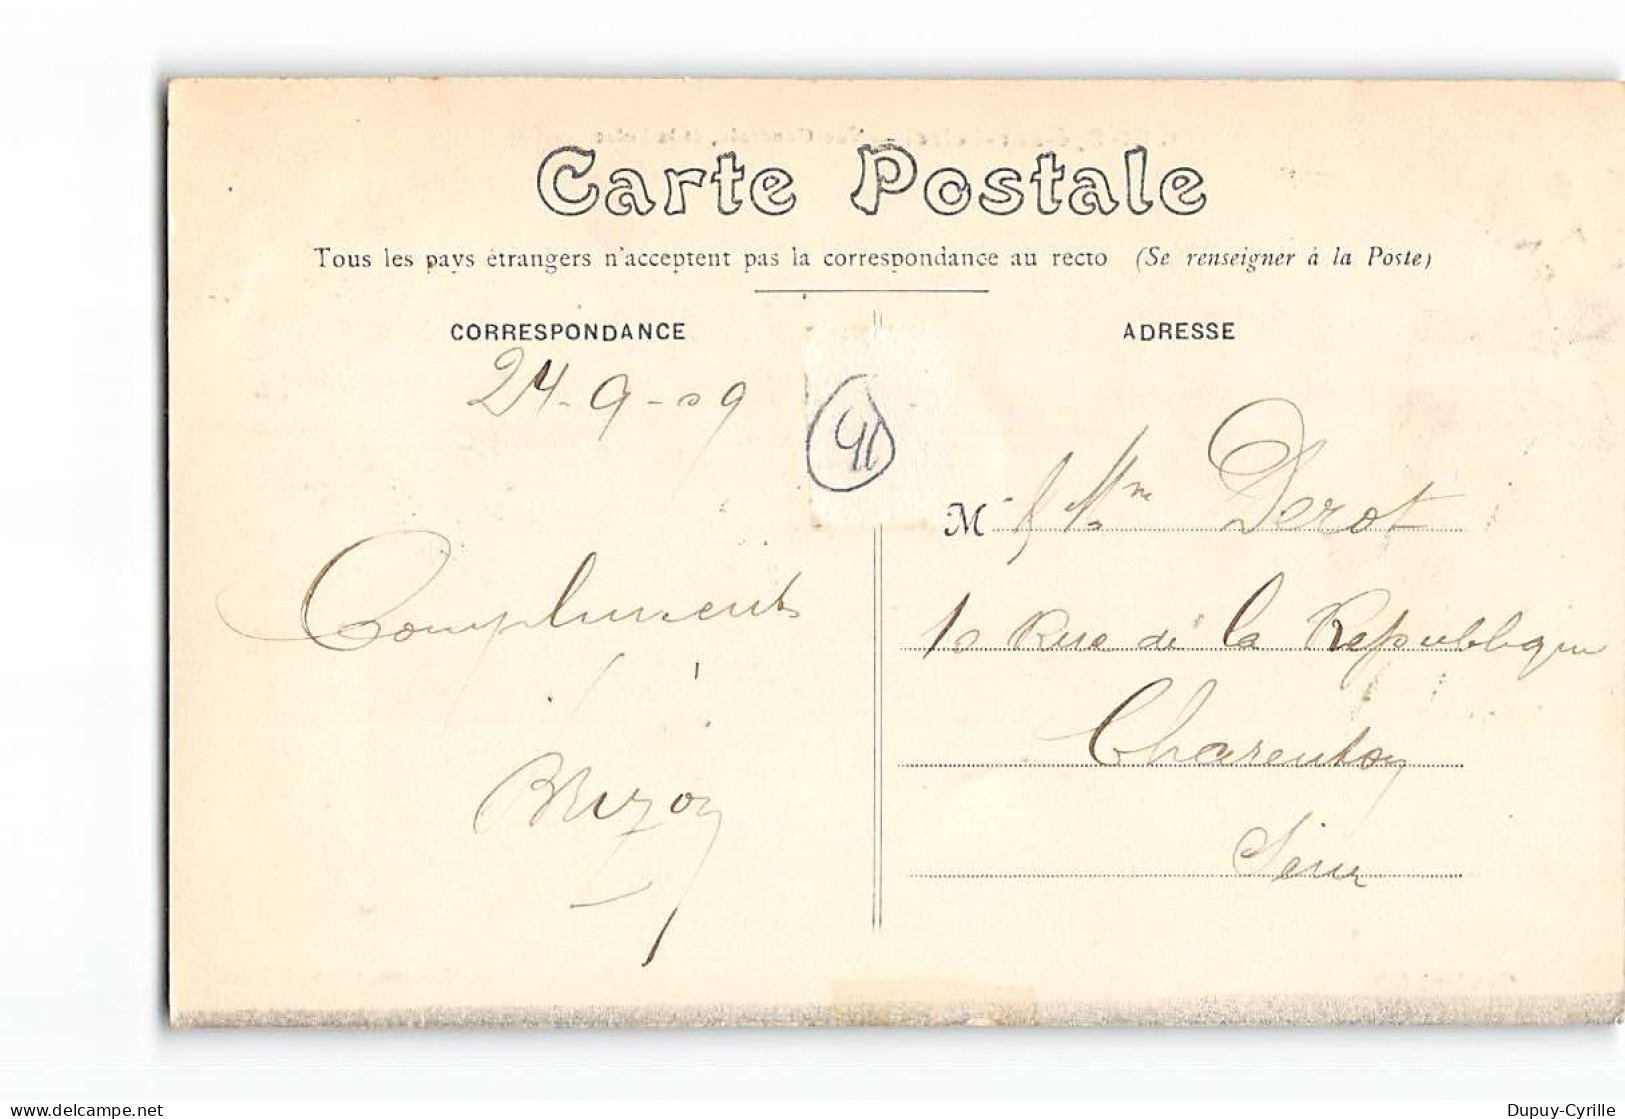 Carte Postale
Tous les pays étrangers n'acceptent pas la correspondance au recto (Se renseigner à la Poste)
CORRESPONDANCE
24-9-09
41
Compliments
ADRESSE
M Mme Derot
10 Rue de la Republique
Charenton
Seine
Dupuy-Cyrille